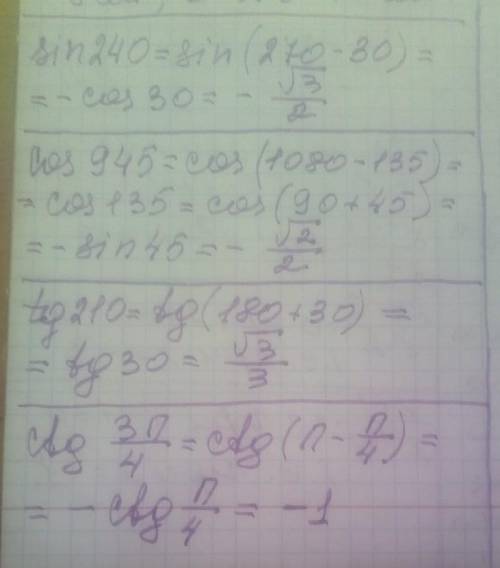 sin240 = sin(270 - 30) =
= - cos30 = - √3/2
cos 945 = cos(1080 - 135) =
= cos135 = cos(90 + 45) =
= - sin45 = - √2/2
tg210 = tg(180 + 30) =
= tg30 = √3/3
ctg 3π/4 = ctg(π - π/4) =
= - ctg π/4 = -1